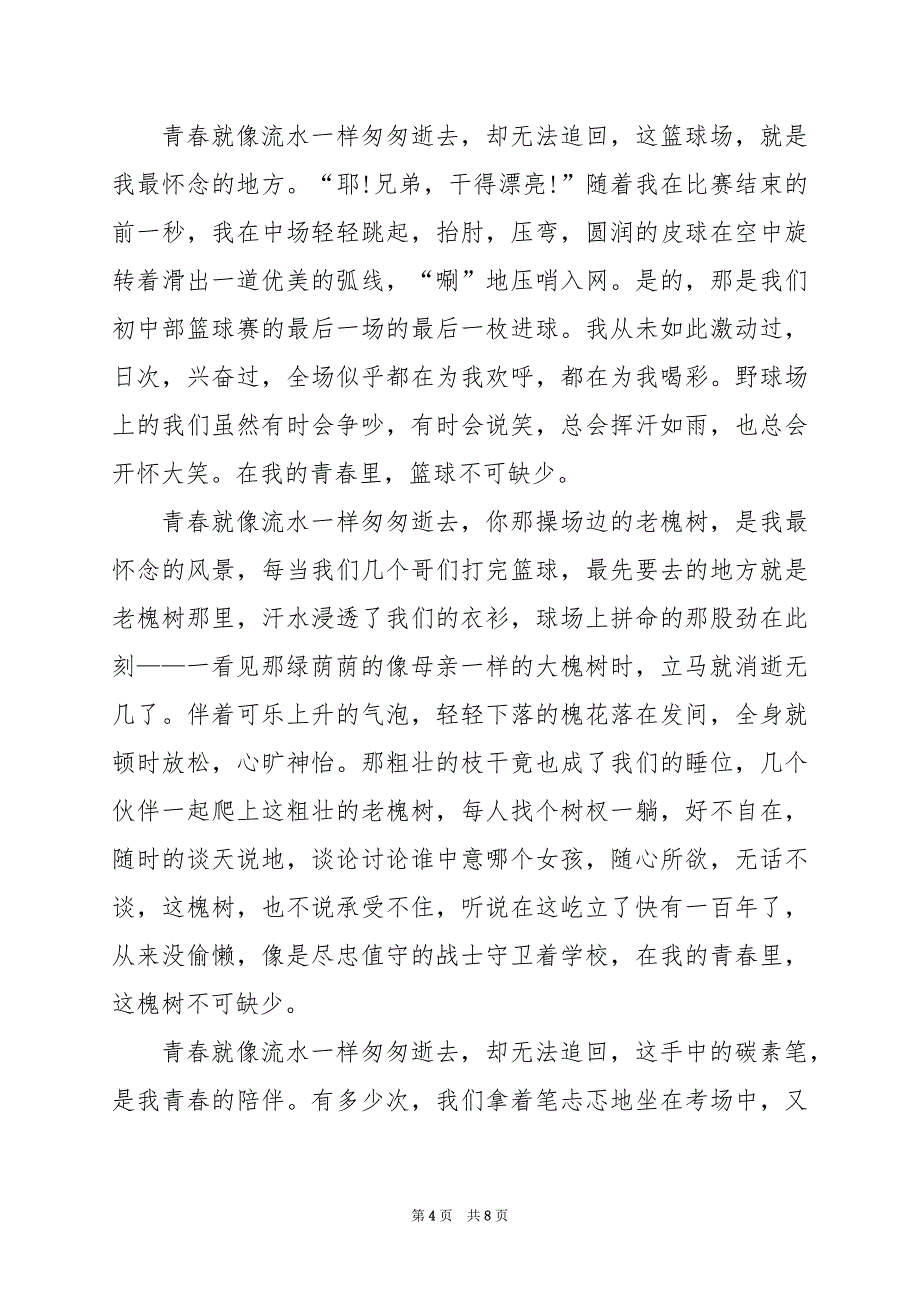 青春就像流水一样匆匆逝去，却无法追回，这篮球场，就是
我最怀念的地方。“耶!兄弟，干得漂亮!”随着我在比赛结束的
前一秒，我在中场轻轻跳起，抬肘，压弯，圆润的皮球在空中旋
转着滑出一道优美的弧线，“唰”地压哨入网。是的，那是我们
初中部篮球赛的最后一场的最后一枚进球。我从未如此激动过，
日次，兴奋过，全场似乎都在为我欢呼，都在为我喝彩。野球场
上的我们虽然有时会争吵，有时会说笑，总会挥汗如雨，也总会
开怀大笑。在我的青春里，篮球不可缺少。
青春就像流水一样匆匆逝去，你那操场边的老槐树，是我最
怀念的风景，每当我们几个哥们打完篮球，最先要去的地方就是
老槐树那里，汗水浸透了我们的衣衫，球场上拼命的那股劲在此
刻——一看见那绿荫荫的像母亲一样的大槐树时，立马就消逝无
几了。伴着可乐上升的气泡，轻轻下落的槐花落在发间，全身就
顿时放松，心旷神怡。那粗壮的枝干竟也成了我们的睡位，几个
伙伴一起爬上这粗壮的老槐树，每人找个树杈一躺，好不自在，
随时的谈天说地，谈论讨论谁中意哪个女孩，随心所欲，无话不
谈，这槐树，也不说承受不住，听说在这屹立了快有一百年了，
从来没偷懒，像是尽忠值守的战士守卫着学校，在我的青春里，
这槐树不可缺少。
青春就像流水一样匆匆逝去，却无法追回，这手中的碳素笔，
是我青春的陪伴。有多少次，我们拿着笔忐忑地坐在考场中，又
第 4 页 共 8 页